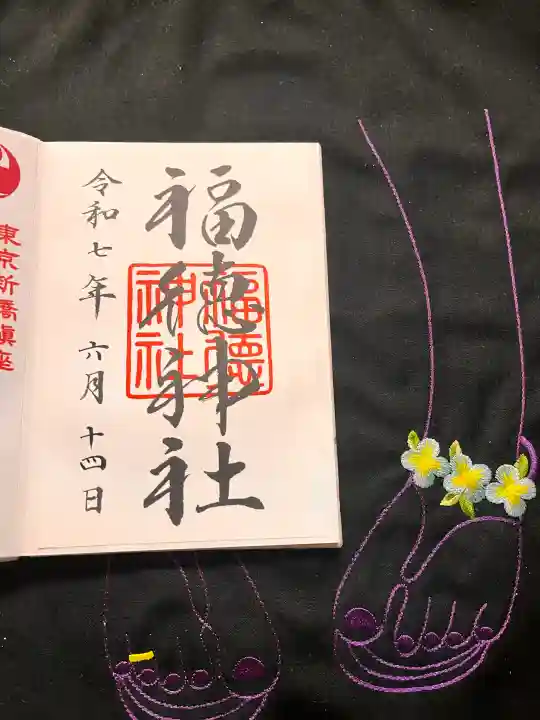 福徳神社
福徳神社
令和七年 六月 十四日
東京新橋鎮座